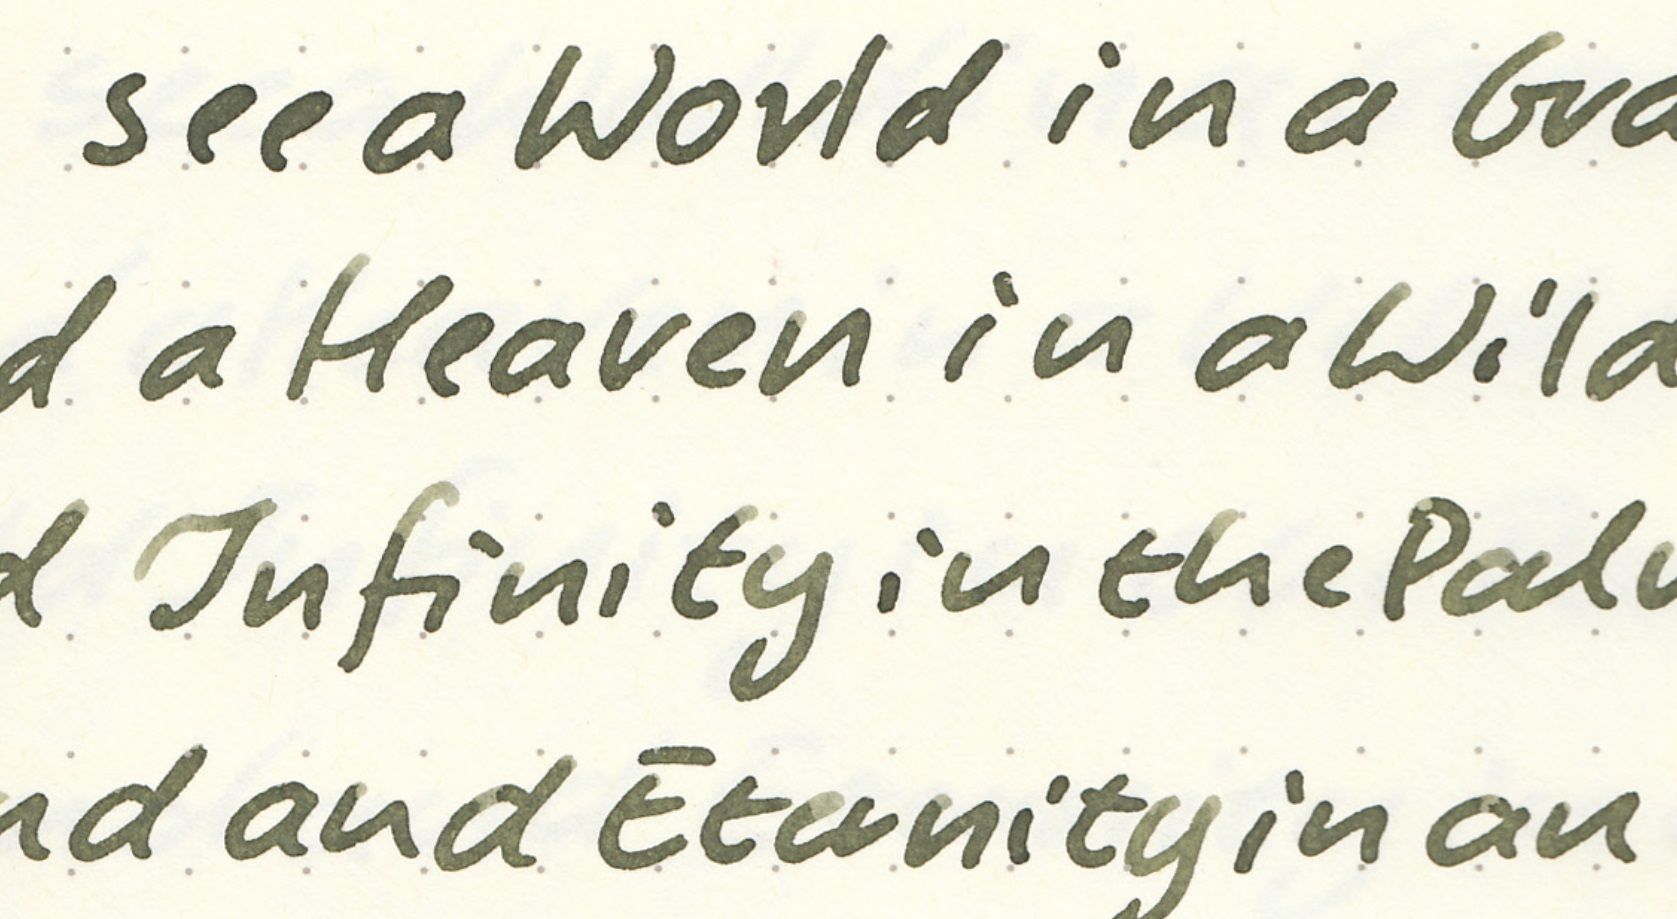 see a World in a Gra
d a Heaven in a Wild
d Infinity in the Palm
nd and Etanity in an